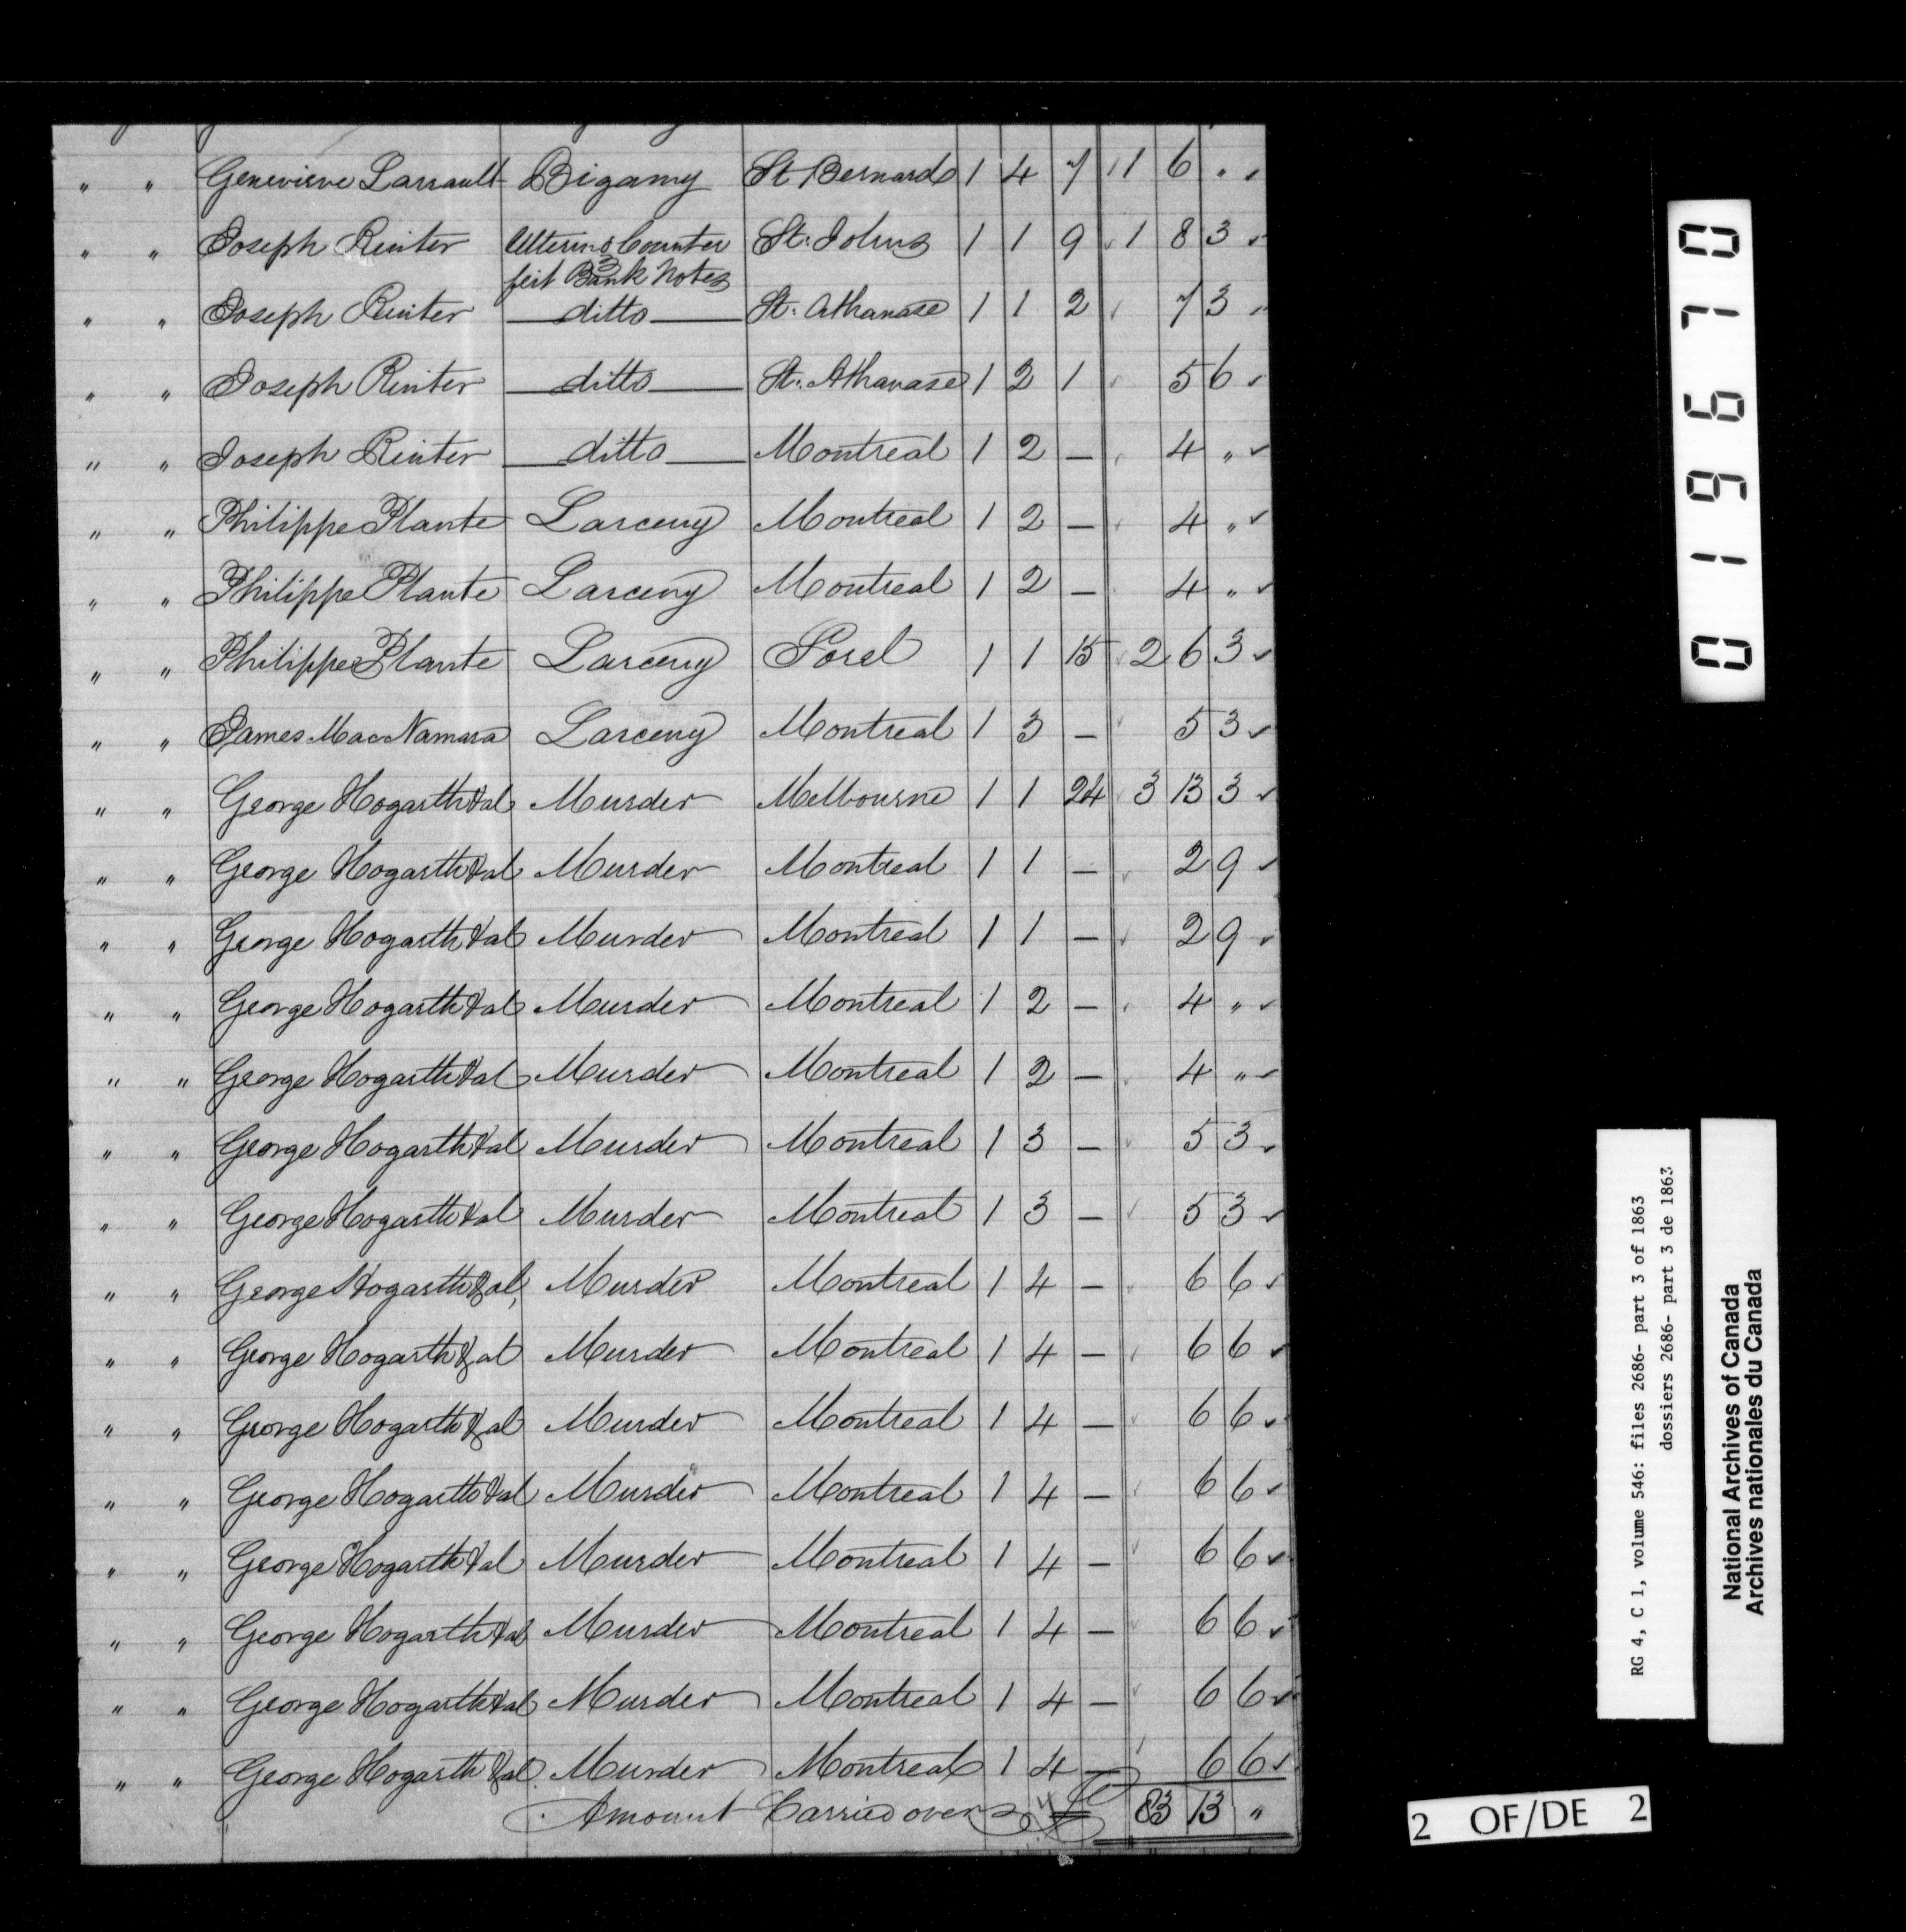 " " Genevieve Larrault Bigamy St Bernard 1 4 7 1 6 "
" " Joseph Reiiter Uttering Counter St. Johns 1 1 9 1 8 3
feit Bank Notes
" " Joseph Reiiter ditto St. Athanase 1 1 2 7 3
" " Joseph Reiiter ditto St. Athanase 1 2 1 5 6
" " Joseph Reiiter ditto Montreal 1 2 — 4 "
" " Philippe Plante Larceny Montreal 1 2 — 4 "
" " Philippe Plante Larceny Montreal 1 2 — 4 "
" " Philippe Plante Larceny Sorel 1 1 15 2 6 3
" " James MacNamara Larceny Montreal 1 3 — 5 3
" " George Hogarth & al Murder Melbourne 1 1 24 3 13 3
" " George Hogarth & al Murder Montreal 1 1 — 2 9
" " George Hogarth & al Murder Montreal 1 1 — 2 9
" " George Hogarth & al Murder Montreal 1 2 — 4 "
" " George Hogarth & al Murder Montreal 1 2 — 4 "
" " George Hogarth & al Murder Montreal 1 3 — 5 3
" " George Hogarth & al Murder Montreal 1 3 — 5 3
" " George Hogarth & al, Murder Montreal 1 4 — 6 6
" " George Hogarth & al Murder Montreal 1 4 — 6 6
" " George Hogarth & al Murder Montreal 1 4 — 6 6
" " George Hogarth & al Murder Montreal 1 4 — 6 6
" " George Hogarth & al Murder Montreal 1 4 — 6 6
" " George Hogarth & al Murder Montreal 1 4 — 6 6
" " George Hogarth & al Murder Montreal 1 4 — 6 6
" " George Hogarth & al. Murder Montreal 1 4 — 6 6
Amount Carried over 83 13 "
019670
RG 4, C 1, volume 546: files 2686- part 3 of 1863
dossiers 2686- part 3 de 1863
National Archives of Canada
Archives nationales du Canada
2 OF/DE 2